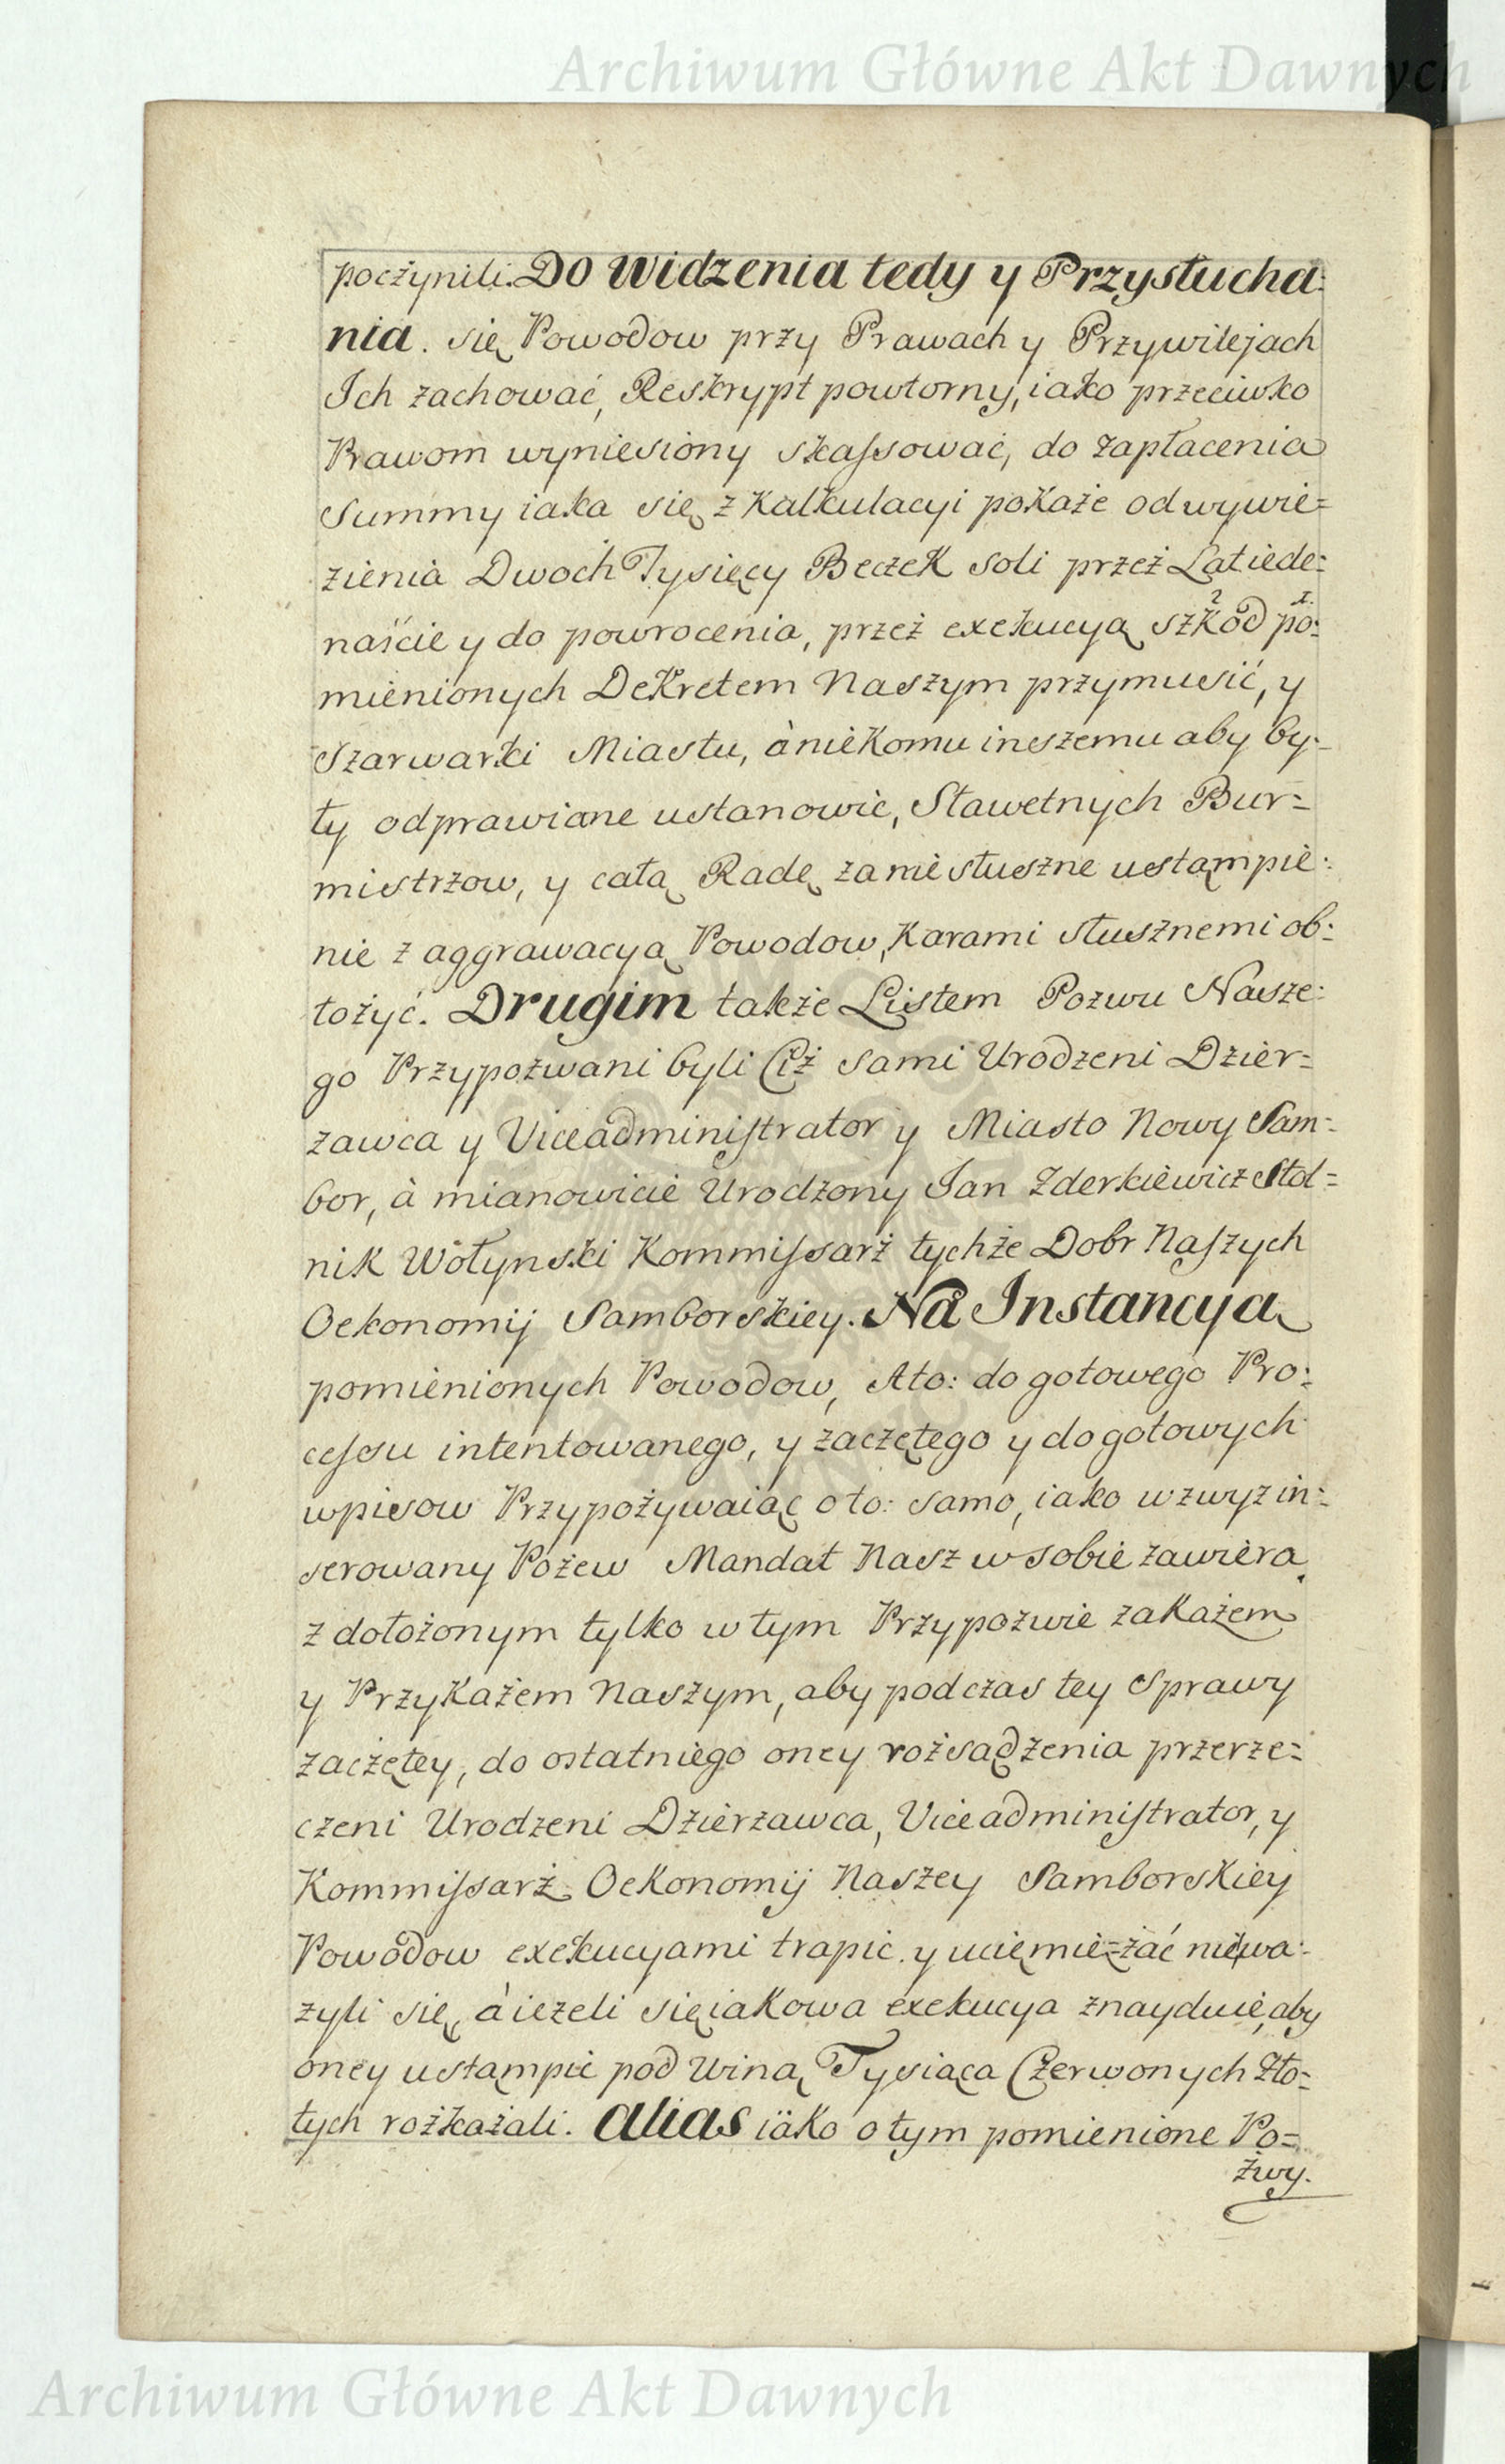 Archiwum Główne Akt Dawnych
poczynili. Do Widzenia tedy y Przysłucha:
nia. się Powodow przy Prawach y Przywilejach
Ich zachować, Reskrypt powtorny, iako przeciwko
Prawom wyniesiony skassować, do zapłacenia
Summy iaka się z Kalkulacyi pokaże od wywie=
zienia Dwoch Tysięcy Beczek soli przez Lat iede=
naście y do powrocenia, przez exekucyą szkod 2 po: 1.
mienionych Dekretem Naszym przymusić, y
Szarwarki Miastu, à niekomu inszemu aby by=
ły odprawiane ustanowić, Sławetnych Bur=
mistrzow, y całą Radę za nie słuszne ustąmpie:
nie z aggrawacyą Powodow, Karami słusznemi ob:
łożyć. Drugim także Listem Pozwu Nasze:
go Przypozwani byli Ciż sami Urodzeni Dzier=
żawca y Viceadministrator y Miasto Nowy Sam=
bor, à mianowicie Urodzony Jan Zderkiewicz Stol=
nik Wołynski Kommissarz tychże Dobr Naszych
Oekonomij Samborskiey. Na Instancyą
pomienionych Powodow, Ato: do gotowego Pro:
cessu intentowanego, y zaczętego y do gotowych
wpisow Przypozywaiąc oto: samo, iako wzwyz in=
serowany Pozew Mandat Nasz w sobie zawiera.
z dołożonym tylko w tym Przypozwie zakazem
y Przykazem Naszym, aby podczas tey Sprawy
zaczętey, do ostatniego oney rozsądzenia przerze=
czeni Urodzeni Dzierzawca, Viceadministrator, y
Kommissarz Oekonomij Naszey Samborskiey
Powodow exekucyami trapic. y uciemiężać nie wa:
zyli się, à iezeli się iakowa exekucya znayduie, aby
oney ustąmpić pod Winą Tysiąca Czerwonych Zło=
tych rozkazali. Alias iäko o tym pomienione Po=
zwy.
Archiwum Główne Akt Dawnych